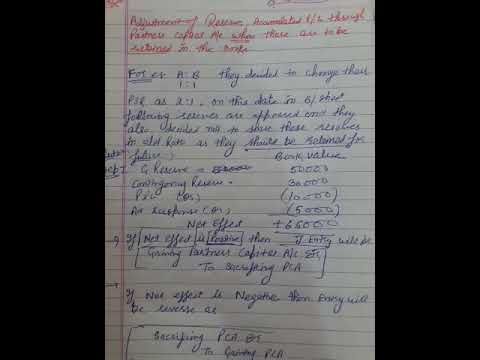 Adjustment of Reserve, Accumulated P/L through
Partners capital A/c when these are to be
retained in the books
For ex A : B they decided to change their
1 : 1
PSR as 2:1. on this date in B/Sheet
following reserves are appeared and they
also decided not to share these reserves
in old Ratio as they should be retained for
future Book value
G Reserve = 50000
Contingency Reserve = 30000
P&L (Dr) (10000)
(Dr) (5000)
Net Effect +65000
If Net effect is Positive then Entry will be
Gaining Partners Capital A/c Dr
To Sacrificing PCA
If Net effect is Negative then Entry will
be reverse as
Sacrificing PCA Dr
To Gaining PCA